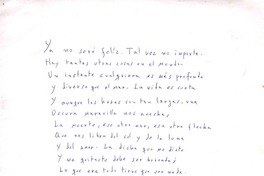 Ya no seré feliz. Tal vez no importa.
Hay tantas otras cosas en el mundo.
Un instante cualquiera es más profundo
y diverso que el mar. La vida es corta
y aunque las horas son tan largas, una
oscura maravilla nos acecha,
La muerte, ese otro mar, esa otra flecha
Que nos libra del sol y de la luna
y del amor. La dicha que me diste
y me quitaste debe ser borrada;
Lo que era todo tiene que ser nada.